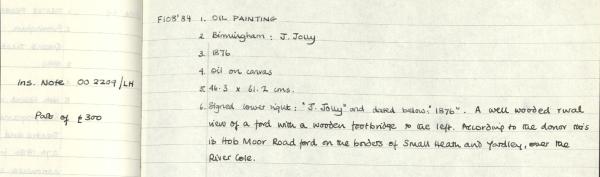 F108'84 1. OIL PAINTING
2. Birmingham: J. Jolly
3. 1876
4. Oil on canvas
Ins. Note 00 2209/LH
5. 46.3 x 61.2 cms.
6. Signed lower right: "J. Jolly" and dated below: "1876". A well wooded rural
Pots of £300
view of a ford with a wooden footbridge to the left. According to the donor this
is Hob Moor Road ford on the borders of Small Heath and Yardley, over the
River Cole.